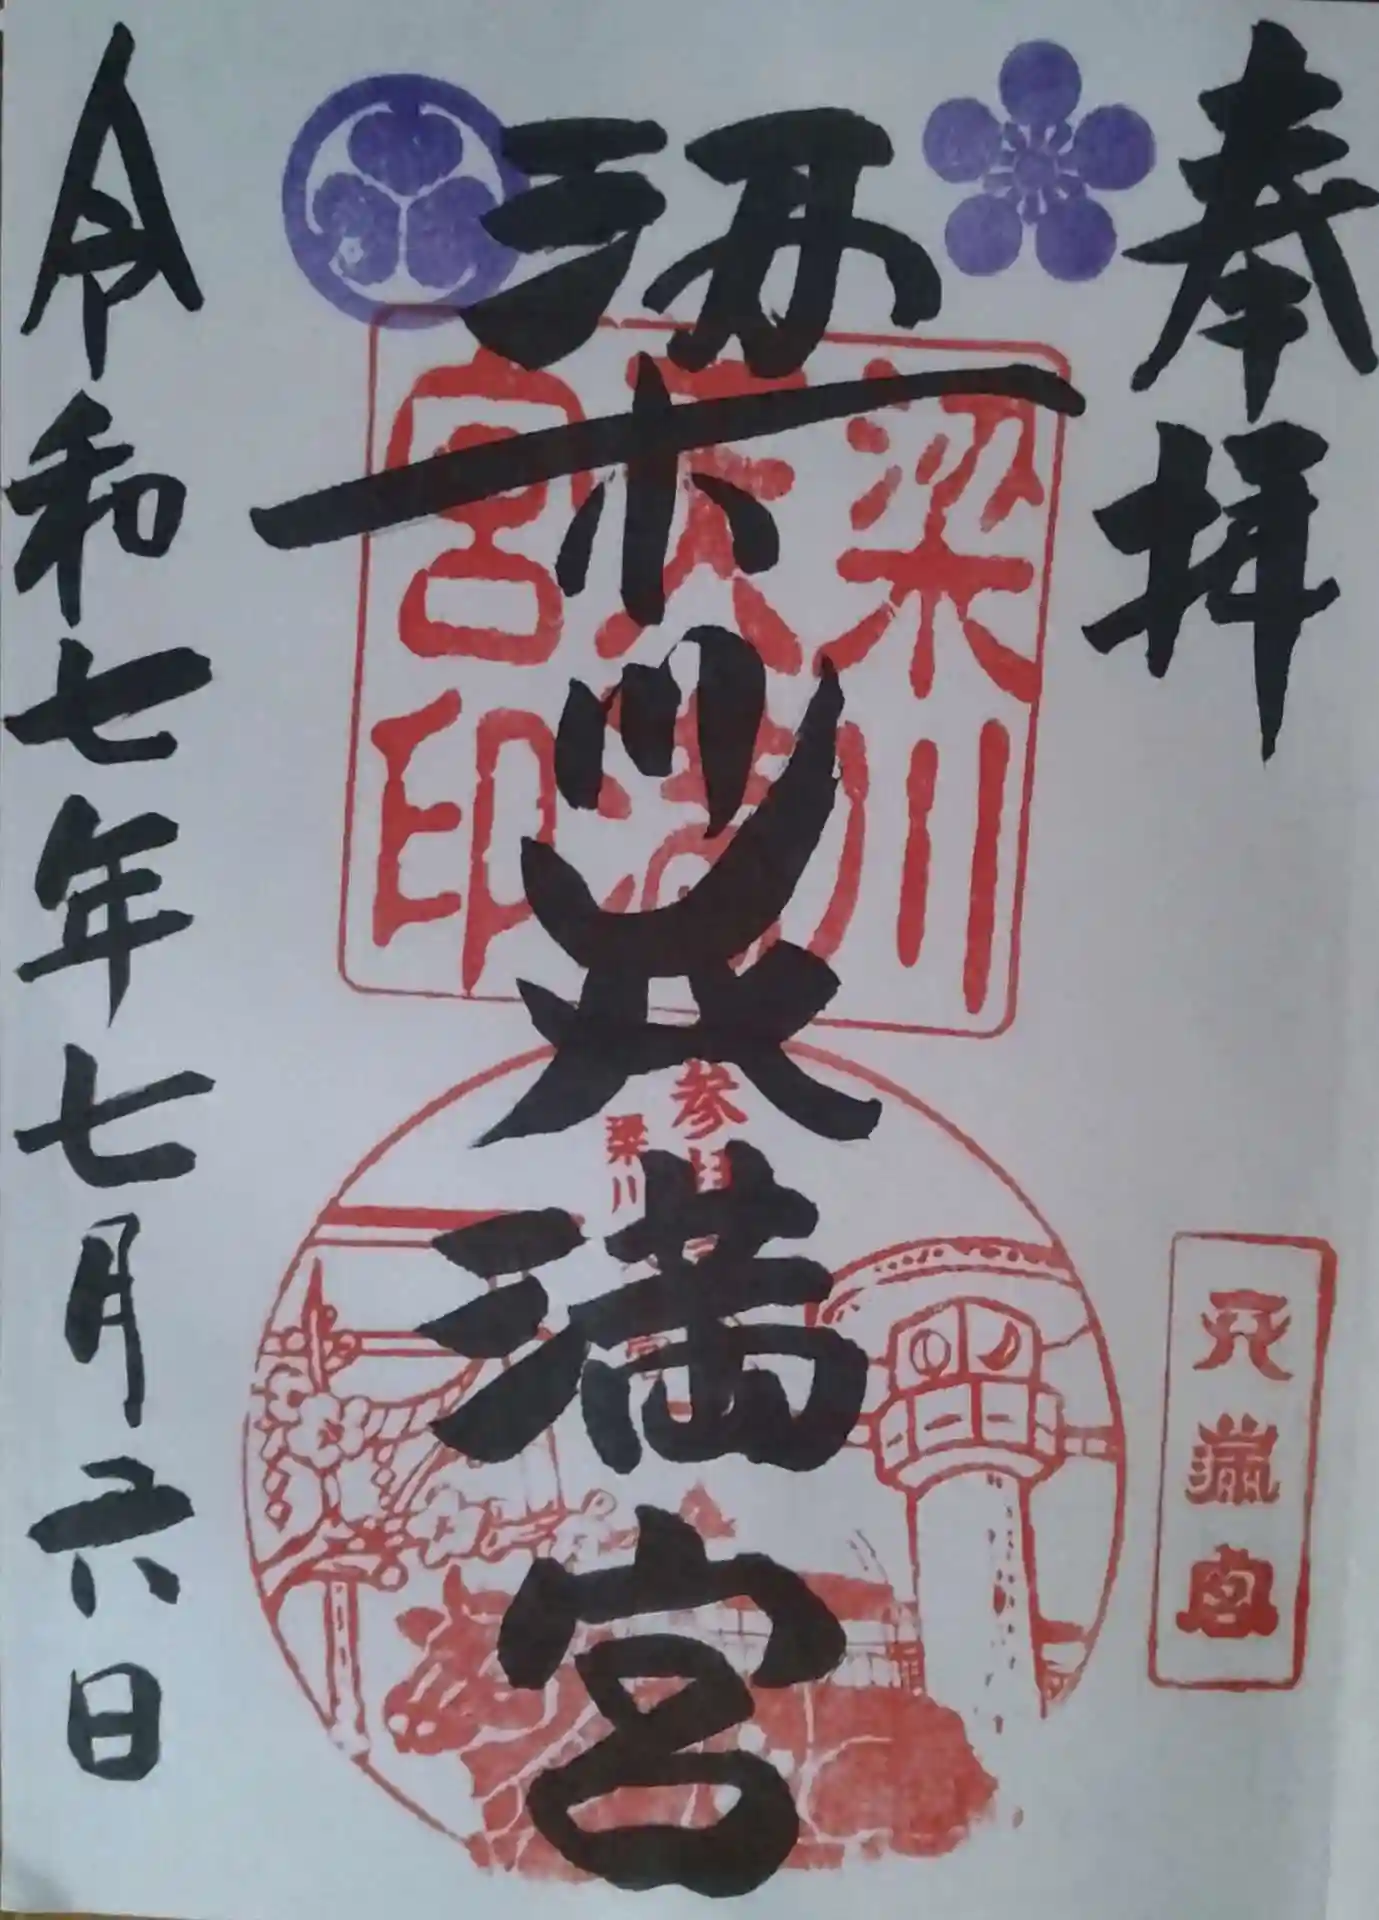 奉拝
梁川天満宮
令和七年七月六日
梁川
天満
宮印
参拝
梁川
天満宮